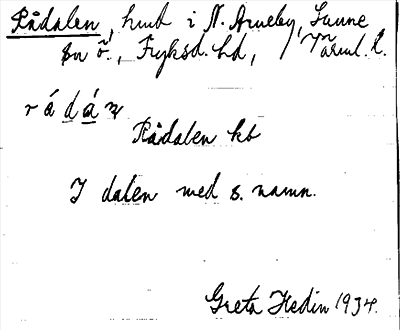 Rådalen, hmd i N. Arneby, Sunne
sn ö., Fryksd. hd, Värml. l.
r á d á ṇ
Rådalen kb
I dalen med s. namn.
Greta Hedin 1934.